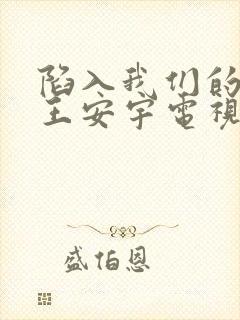 陷入我们的
王安宇電視
盛伯恩